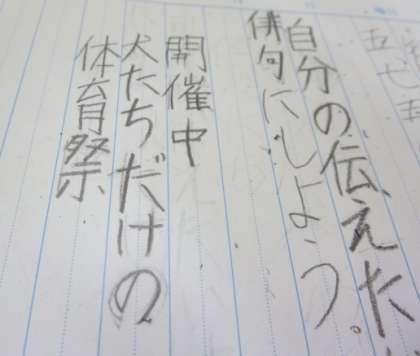 五七五
自分の伝えた
俳句にしよう。
開催中
犬たちだけの
体育祭